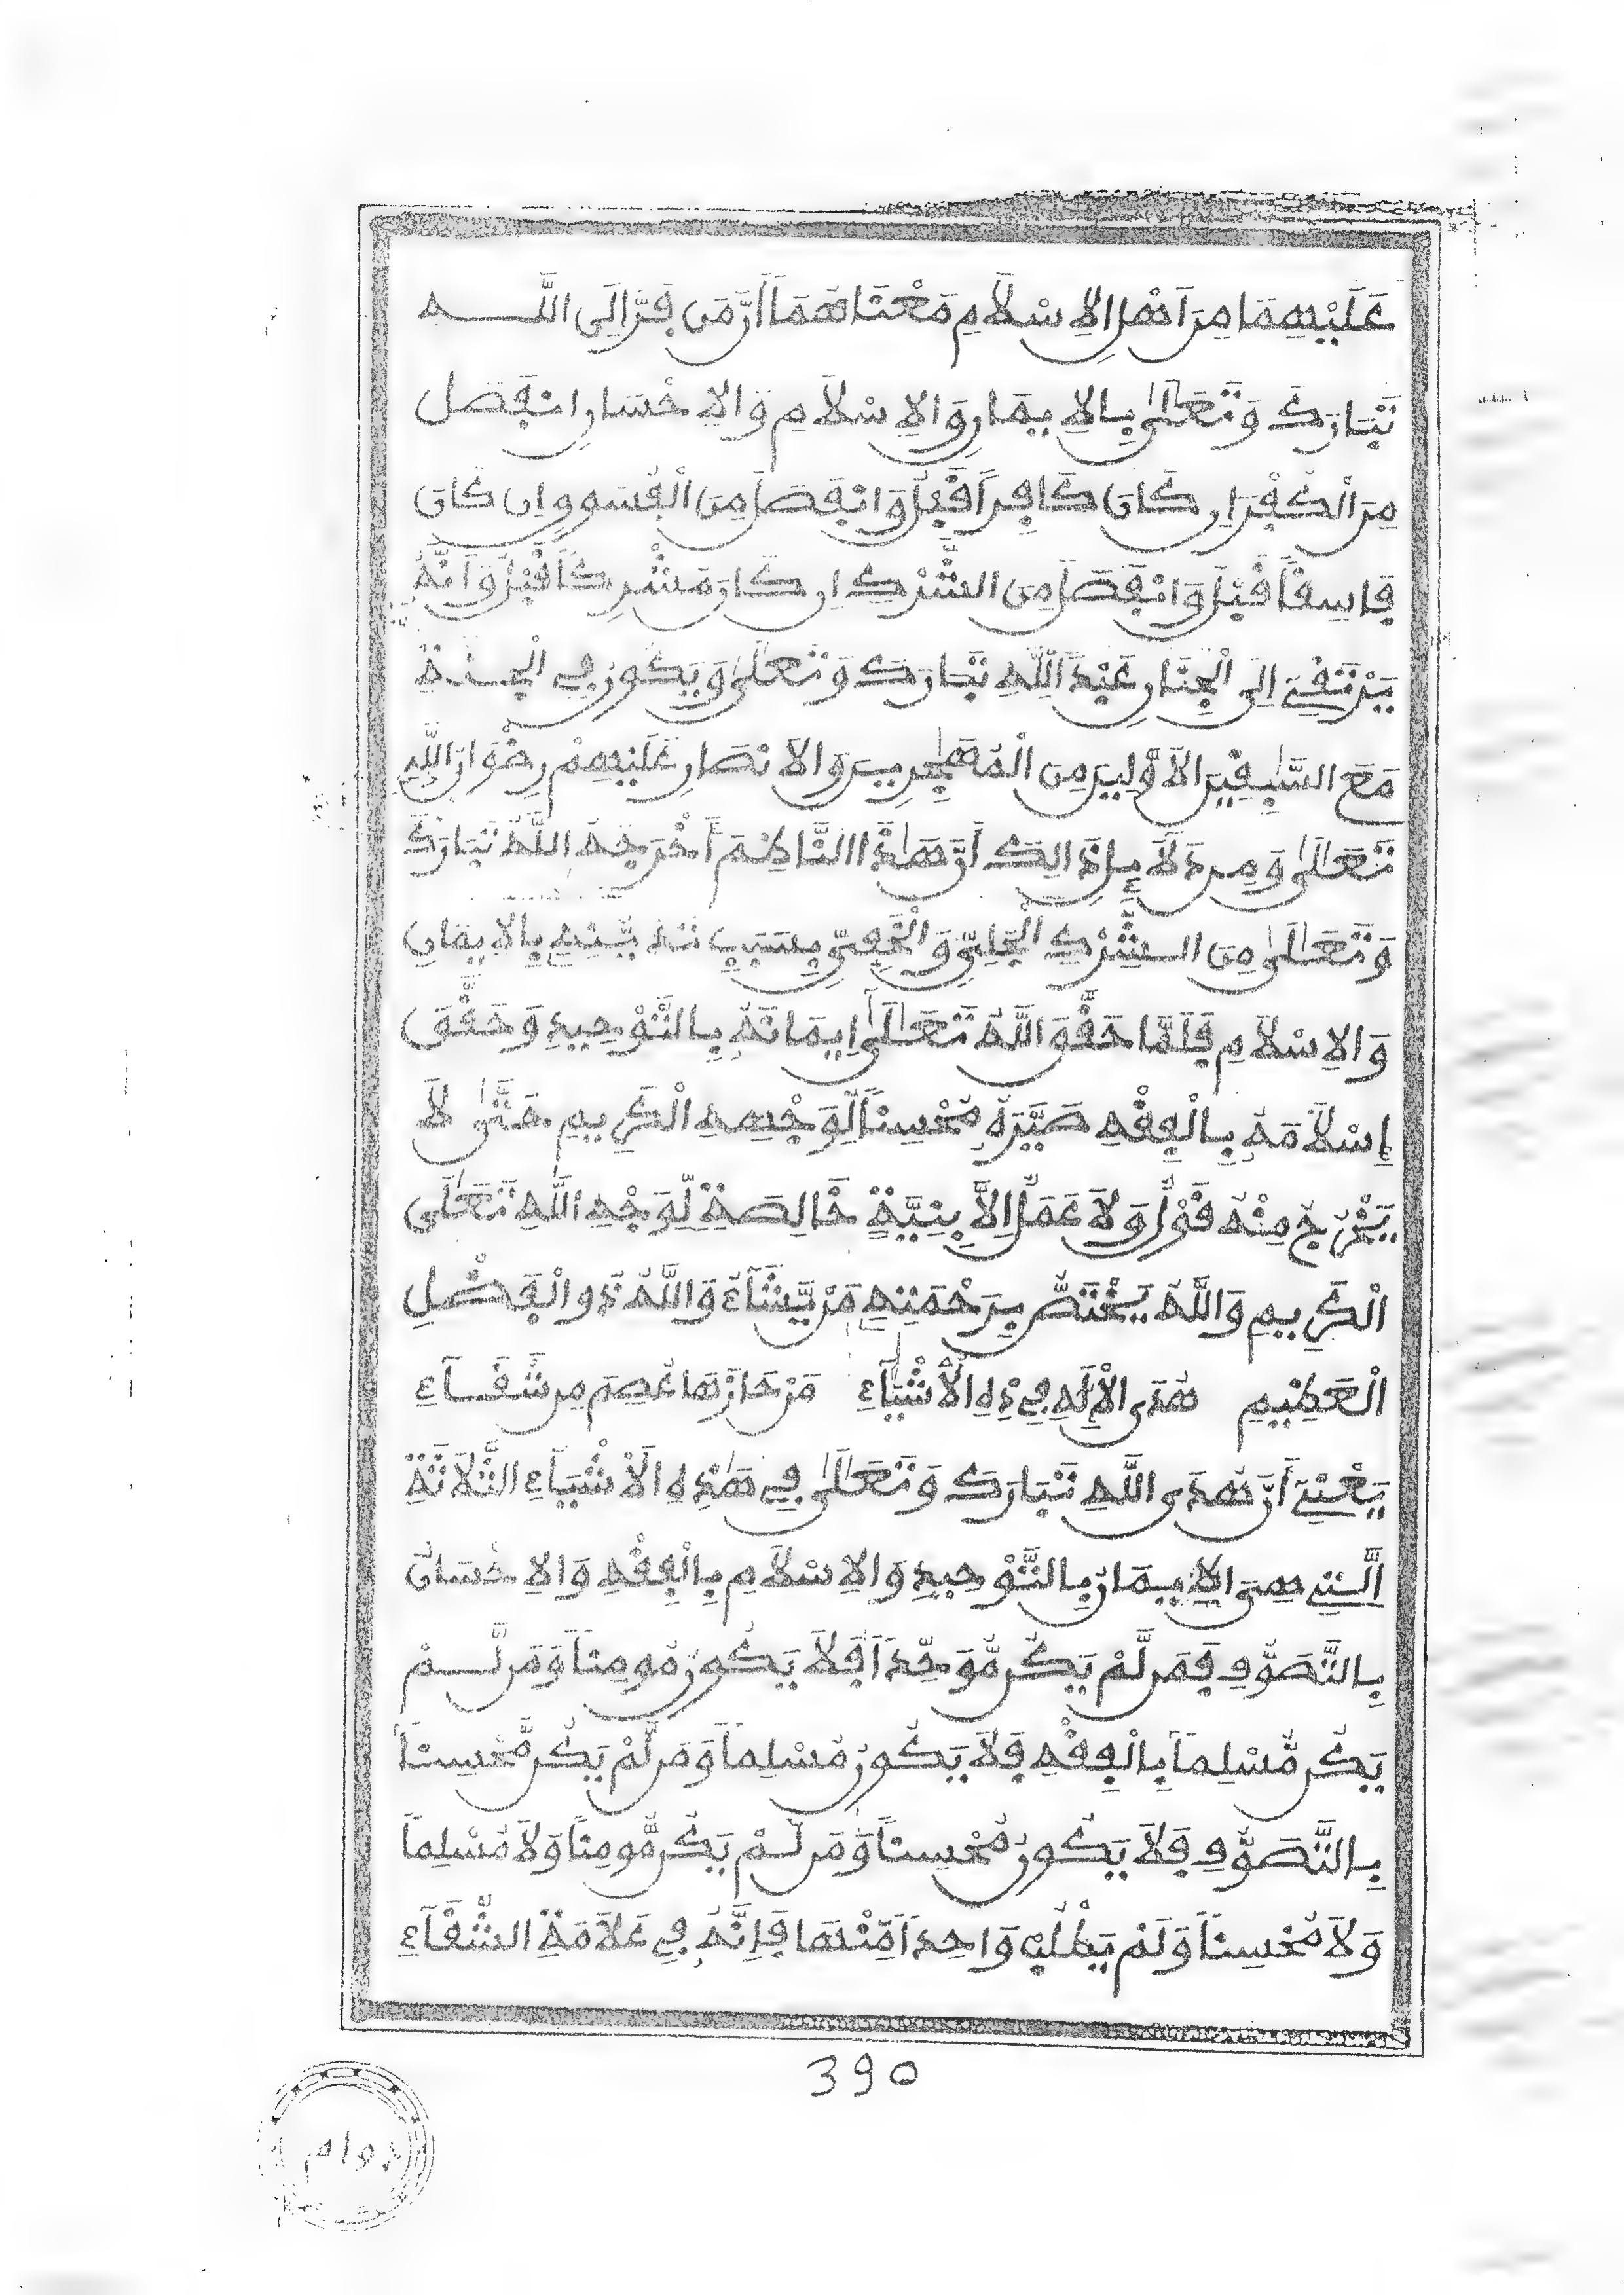 عَلَيْهِمَا مِنَ اَهْلِ الِاسْلَامِ مَعْنَاهُمَا أَنَّ مَن فَرَّ إِلَى اللَّهِ
تَبَارَكَ وَتَعَلَىٰ بِالِايمَانِ وَالِاسْلَامِ وَالِاحْسَانِ انفَصَلَ
مِنَ الْكُفْرِ إِن كَانَ كَافِراً قَبْلُ وَانفَصَلَ مِنَ الْفُسُوقِ إِن كَانَ
فَاسِقاً قَبْلُ وَانفَصَلَ مِنَ الشِّرْكِ إِن كَانَ مُشْرِكاً قَبْلُ وَأَنَّهُ
يَرْتَقِي إِلَى الْجِنَانِ عِندَ اللَّهِ تَبَارَكَ وَتَعَلَىٰ وَيَكُونُ فِي الْجَنَّةِ
مَعَ السَّٰبِقِينَ الَاوَّلِينَ مِنَ الْمُهَٰجِرِينَ وَالَانصَارِ عَلَيْهِمْ رِضْوَانُ اللَّهِ
تَعَلَىٰ وَمِن دَلَآئِلِ ذَالِكَ أَنَّ هَٰذَا النَّاظِمَ أَخْرَجَهُ اللَّهُ تَبَارَكَ
وَتَعَلَىٰ مِنَ الشِّرْكِ الْجَلِيِّ وَالْخَفِيِّ بِسَبَبِ تَثْبِيتِهِ بِالِايمَانِ
وَالِاسْلَامِ فَلَمَّا حَقَّقَ اللَّهُ تَعَلَىٰ إِيمَانَهُ بِالتَّوْحِيدِ وَحَقَّقَ
إِسْلَامَهُ بِالْفِقْهِ صَيَّرَهُ مُحْسِناً لِّوَجْهِهِ الْكَرِيمِ حَتَّىٰ لَا
يَخْرُجَ مِنْهُ قَوْلٌ وَلَا عَمَلٌ إِلَّا بِنِيَّةٍ خَالِصَةٍ لِّوَجْهِ اللَّهِ تَعَلَى
الْكَرِيمِ وَاللَّهُ يَخْتَصُّ بِرَحْمَتِهِ مَنْ يَّشَآءُ وَاللَّهُ ذُو الْفَضْلِ
الْعَظِيمِ هُدَى الْإِلَهِ فِي ذِهِ الْأَشْيَآءِ مَنْ حَازَهَا عُصِمَ مِن شَقَآءِ
يَعْنِي أَنَّ هُدَى اللَّهِ تَبَارَكَ وَتَعَلَىٰ فِي هَٰذِهِ الَاشْيَآءِ الثَّلَاثَةِ
الَّتِي هِيَ الِايمَانُ بِالتَّوْحِيدِ وَالِاسْلَامِ بِالْفِقْهِ وَالِاحْسَانُ
بِالتَّصَوُّفِ فَمَن لَّمْ يَكُن مُّوَحِّداً فَلَا يَكُونُ مُومِناً وَمَن لَّمْ
يَكُن مُّسْلِماً بِالْفِقْهِ فَلَا يَكُونُ مُسْلِماً وَمَن لَّمْ يَكُن مُّحْسِناً
بِالتَّصَوُّفِ فَلَا يَكُونُ مُحْسِناً وَمَن لَّمْ يَكُن مُّومِناً وَلَا مُسْلِماً
وَلَا مُحْسِناً وَلَمْ يَطْلُبْ وَاحِداً مِّنْهَا فَإِنَّهُ فِي عَلَامَةِ الشَّقَآءِ
390